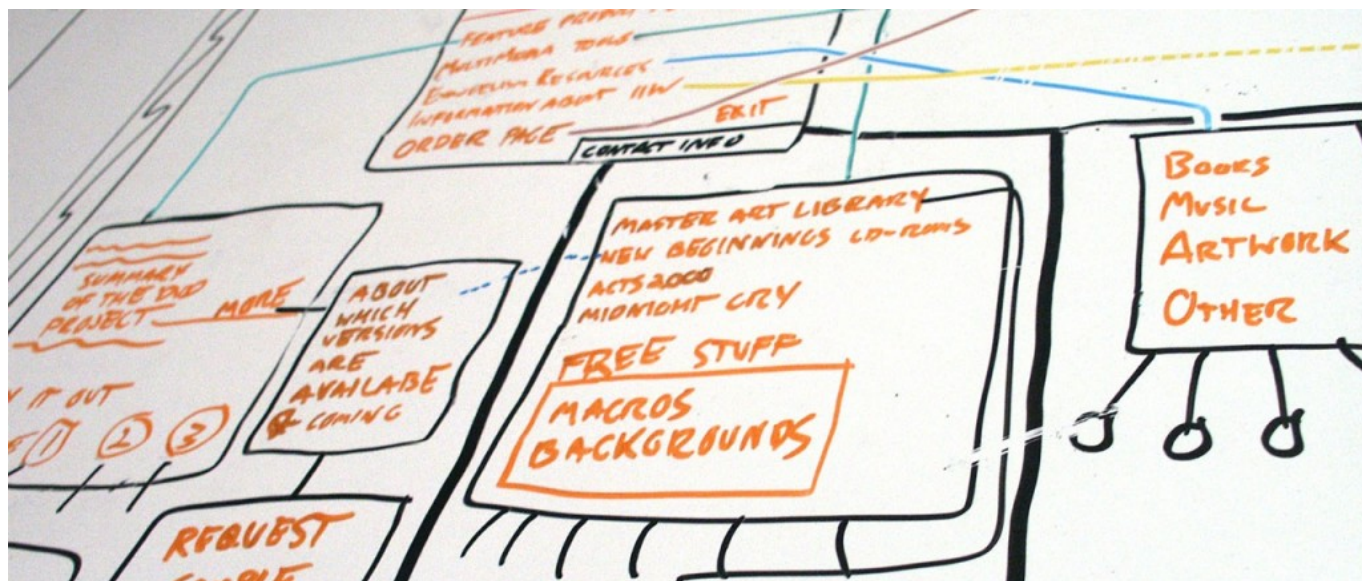 FEATURE PRODUCT
MULTIMEDIA TOOLS
EVANGELISM RESOURCES
INFORMATION ABOUT
ORDER PAGE
EXIT
CONTACT INFO
SUMMARY
OF THE DVD
PROJECT
MORE
IT OUT
1 2 3
ABOUT
WHICH
VERSIONS
ARE
AVAILABE
& COMING
REQUEST
MASTER ART LIBRARY
NEW BEGINNINGS CD-ROMS
ACTS 2000
MIDNIGHT CRY
FREE STUFF
MACROS
BACKGROUNDS
BOOKS
MUSIC
ARTWORK
OTHER